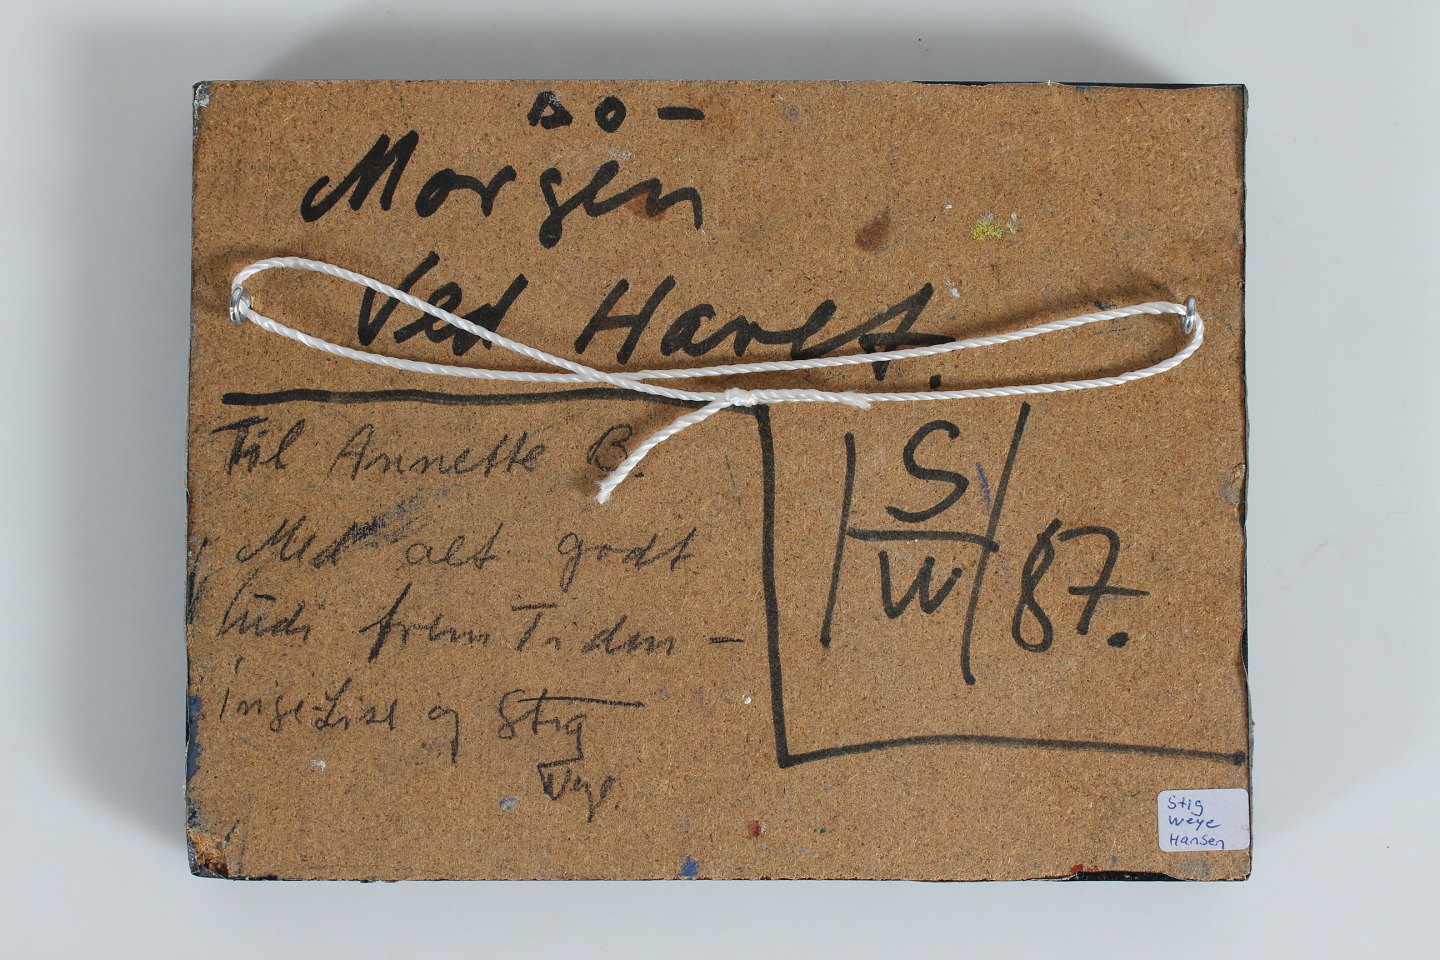 DO-
Morgen
Ved Havet.
Til Annette B.
Med alt godt
i frem Tiden -
Inge-Lise og Stig
S
W
87.
Stig
Weye
Hansen